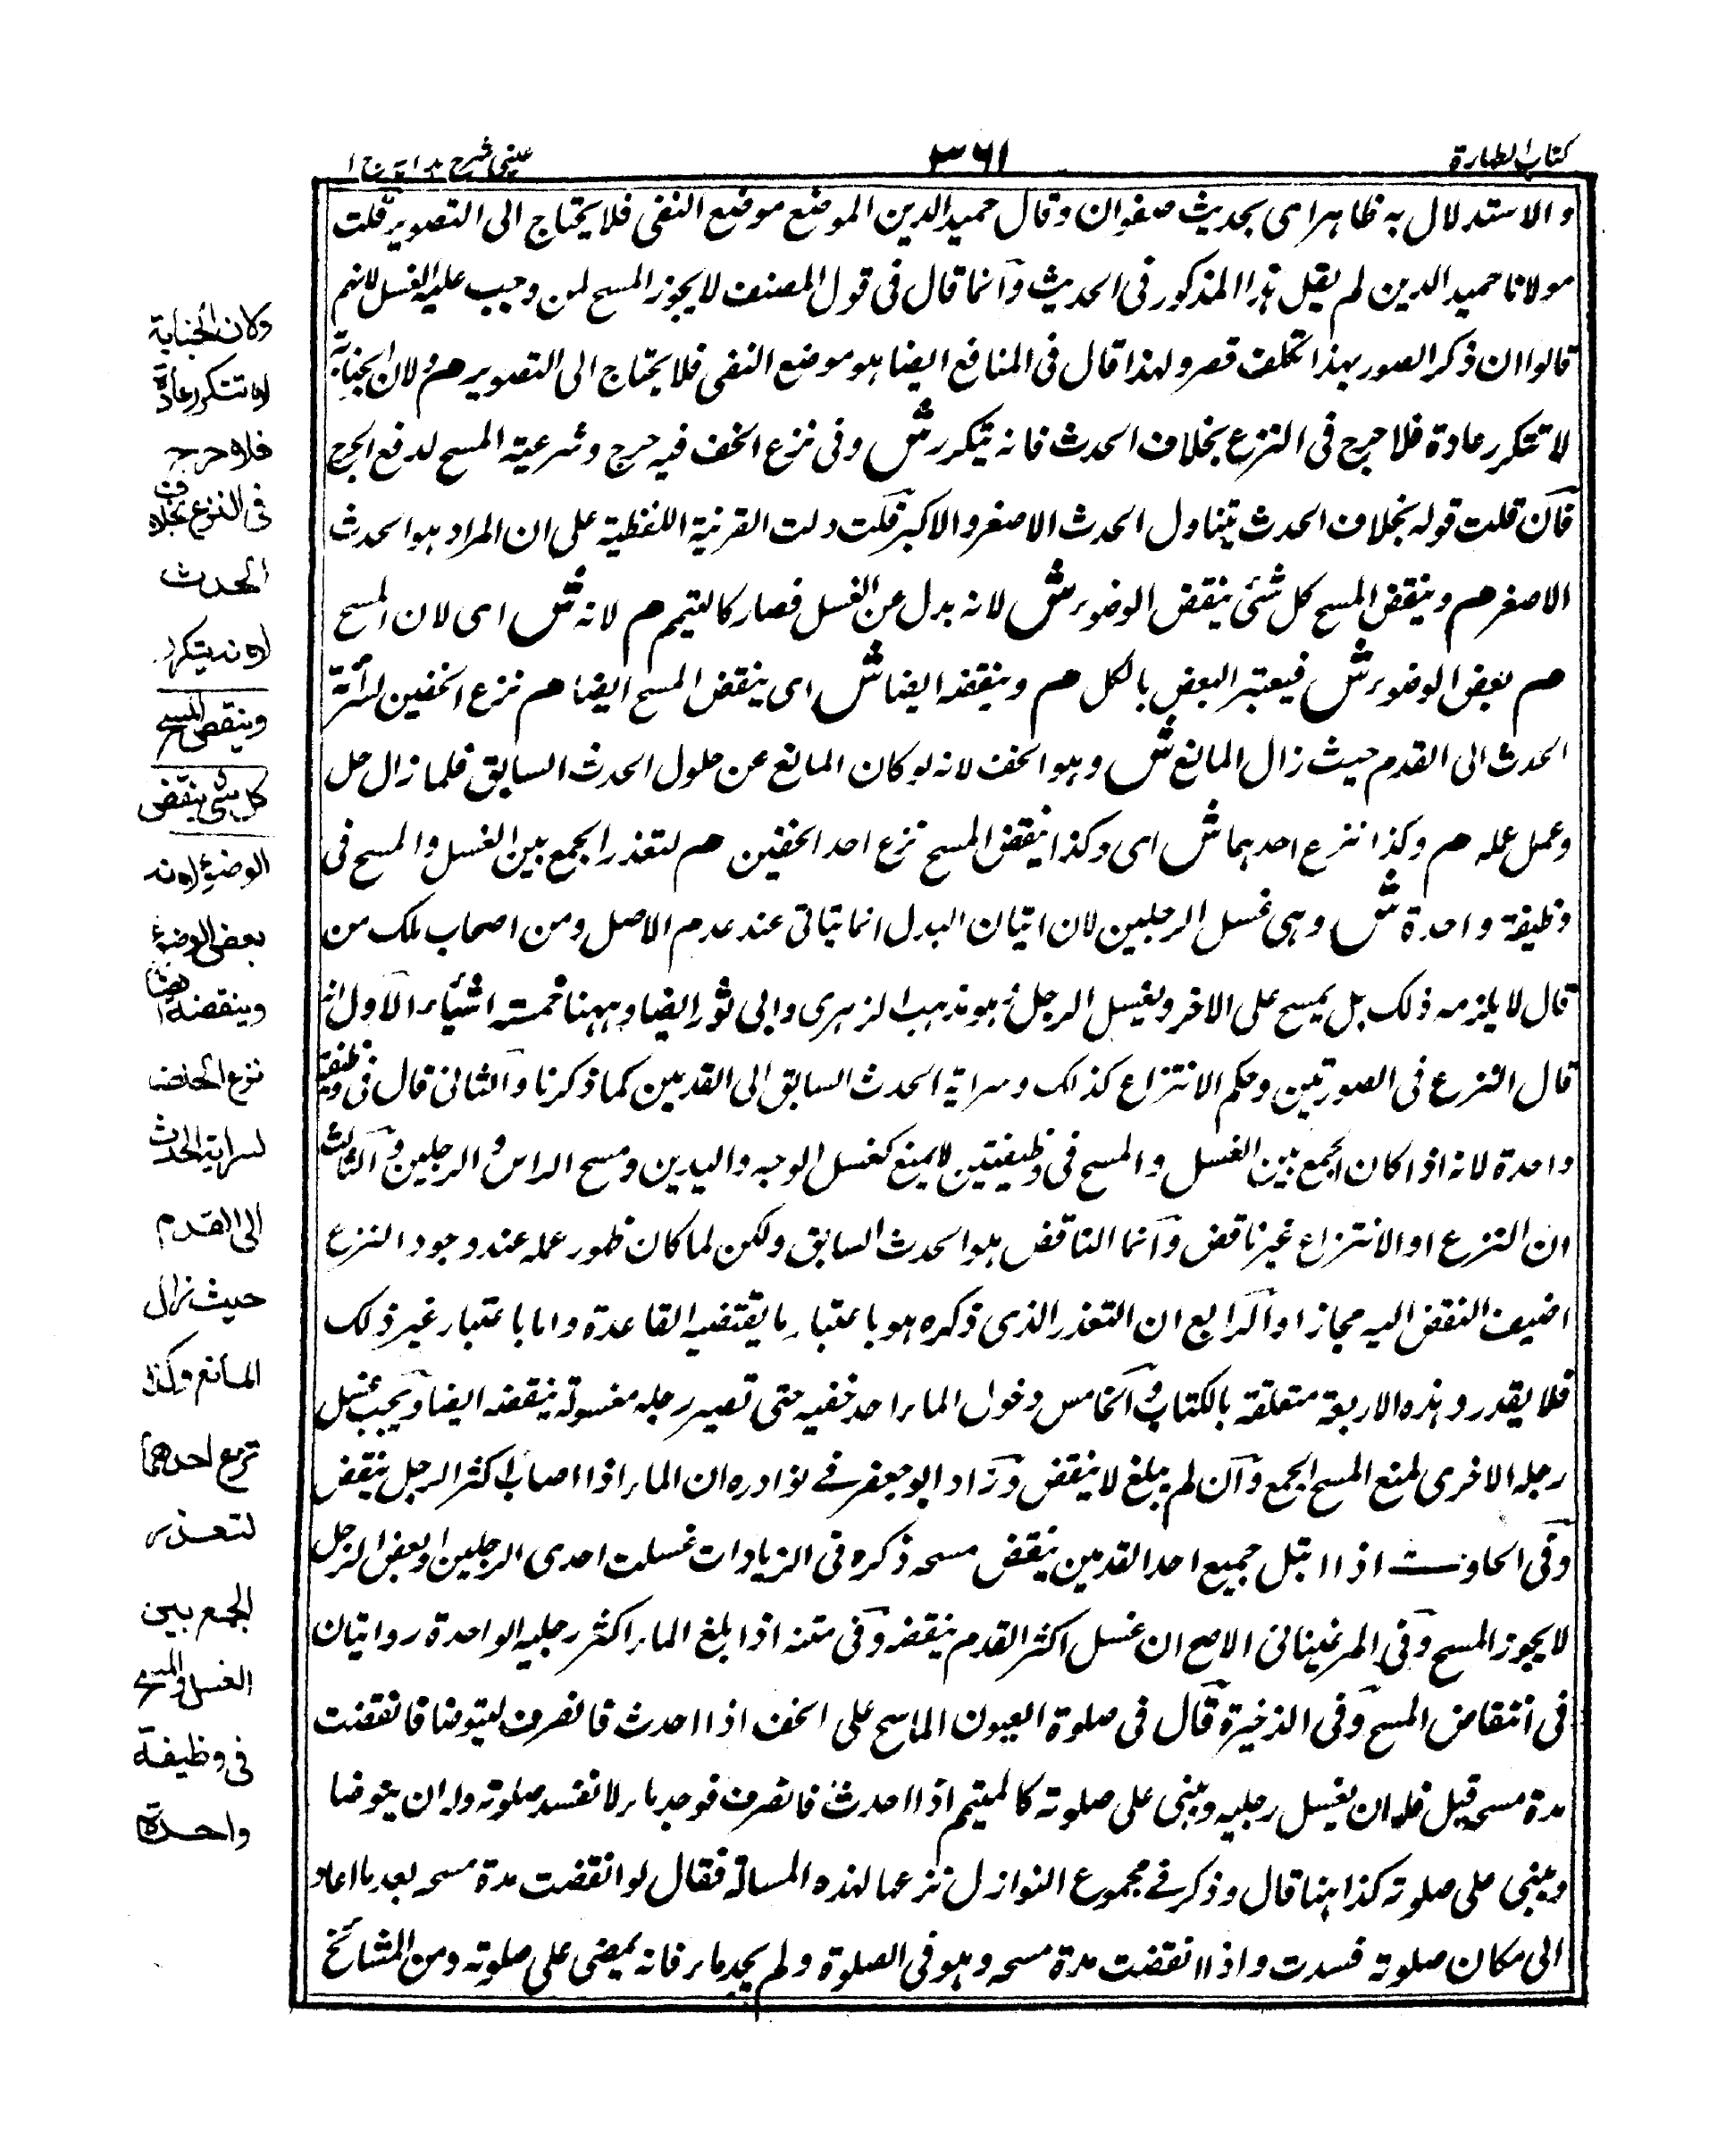 كتاب الطهارة
٣٦١
عينى شرح هداية ج ١
والاستدلال به ظاهر اى بحديث صفوان وقال حميد الدين الموضع موضع النفى فلا يحتاج الى التصوير قلت
مولانا حميد الدين لم يقل هذا المذكور فى الحديث وانما قال فى قول المصنف لا يجوز المسح لمن وجب عليه الغسل لانهم
قالوا ان ذكر الصور بهذا تكلف قصر ولهذا قال فى المنافع ايضا هو موضع النفى فلا يحتاج الى التصوير هم لان الجنابة
لا تتكرر عادة فلا حرج فى النزع بخلاف الحدث فانه يتكرر ش وفى نزع الخف فيه حرج وشرعية المسح لدفع الحرج
فان قلت قوله بخلاف الحدث يتناول الحدث الاصغر والاكبر قلت دلت القرينة اللفظية على ان المراد هو الحدث
الاصغر هم وينقض المسح كل شئ ينقض الوضوء ش لانه بدل عن الغسل فصار كالتيمم هم لانه ش اى لان المسح
هم بعض الوضوء ش فيعتبر البعض بالكل هم وينقضه ايضا ش اى ينقض المسح ايضا هم نزع الخفين لسراية
الحدث الى القدم حيث زال المانع ش وهو الخف لانه لو كان المانع عن حلول الحدث السابق فلما زال حل
وعمل عمله هم وكذا نزع احدهما ش اى وكذا ينقض المسح نزع احد الخفين هم لتعذر الجمع بين الغسل والمسح فى
وظيفة واحدة ش وهى غسل الرجلين لان اتيان البدل انما يتاتى عند عدم الاصل ومن اصحاب ملك من
قال لا يلزمه ذلك بل يمسح على الاخر ويغسل الرجل هو مذهب الزهرى وابى ثور ايضا وههنا خمسة اشياء الاول انه
قال النزع فى الصورتين وحكم الانتزاع كذلك وسراية الحدث السابق الى القدمين كما ذكرنا والثانى قال فى وظيفة
واحدة لانه اذا كان الجمع بين الغسل والمسح فى وظيفتين لا يمنع كغسل الوجه واليدين ومسح الراس والرجلين والثالث
ان النزع او الانتزاع غير ناقض وانما الناقض هو الحدث السابق ولكن لما كان ظهور عمله عند وجود النزع
اضيف النقض اليه مجازا والرابع ان التعذر الذى ذكره هو باعتبار ما يقتضيه القاعدة واما باعتبار غير ذلك
فلا يقدر وهذه الاربعة متعلقة بالكتاب والخامس دخول الماء احد خفيه حتى تصير رجله مغسولة ينقضه ايضا ويجب غسل
رجله الاخرى لمنع المسح الجمع وان لم يبلغ لا ينقض وزاد ابو جعفر فى نوادره ان الماء اذا اصاب اكثر الرجل ينقض
وفى الحاوى اذا ابتل جميع احد القدمين ينقض مسحه ذكره فى الزيادات غسلت احدى الرجلين او بعض الرجل
لا يجوز المسح وفى المرغينانى الاصح ان غسل اكثر القدم ينقضه وفى متنه اذا بلغ الماء اكثر رجليه الواحدة روايتان
فى انتقاض المسح وفى الذخيرة قال فى صلوة العيون الماسح على الخف اذا احدث فانصرف ليتوضا فانقضت
مدة مسحه قبل فله ان يغسل رجليه ويبنى على صلوته كالمتيمم اذا احدث فانصرف فوجد ماء لا تفسد صلوته وله ان يتوضا
ويبنى على صلوته كذا هنا قال وذكر فى مجموع النوازل نزعها لهذه المسالة فقال لو انقضت مدة مسحه بعد ما اعاد
الى مكان صلوته فسدت واذا انقضت مدة مسحه وهو فى الصلوة ولم يجد ماء فانه يمضى على صلوته ومن المشائخ
وكان الجنابة
لا تتكرر عادة
فلا حرج
فى النزع بخلاف
الحدث
لانه يتكرر
وينقض المسح
كل شئ ينقض
الوضوء لانه
بعض الوضوء
وينقضه ايضا
نزع الخف
لسراية الحدث
الى القدم
حيث زال
المانع وكذا
نزع احدهما
لتعذر
الجمع بين
الغسل والمسح
فى وظيفة
واحدة